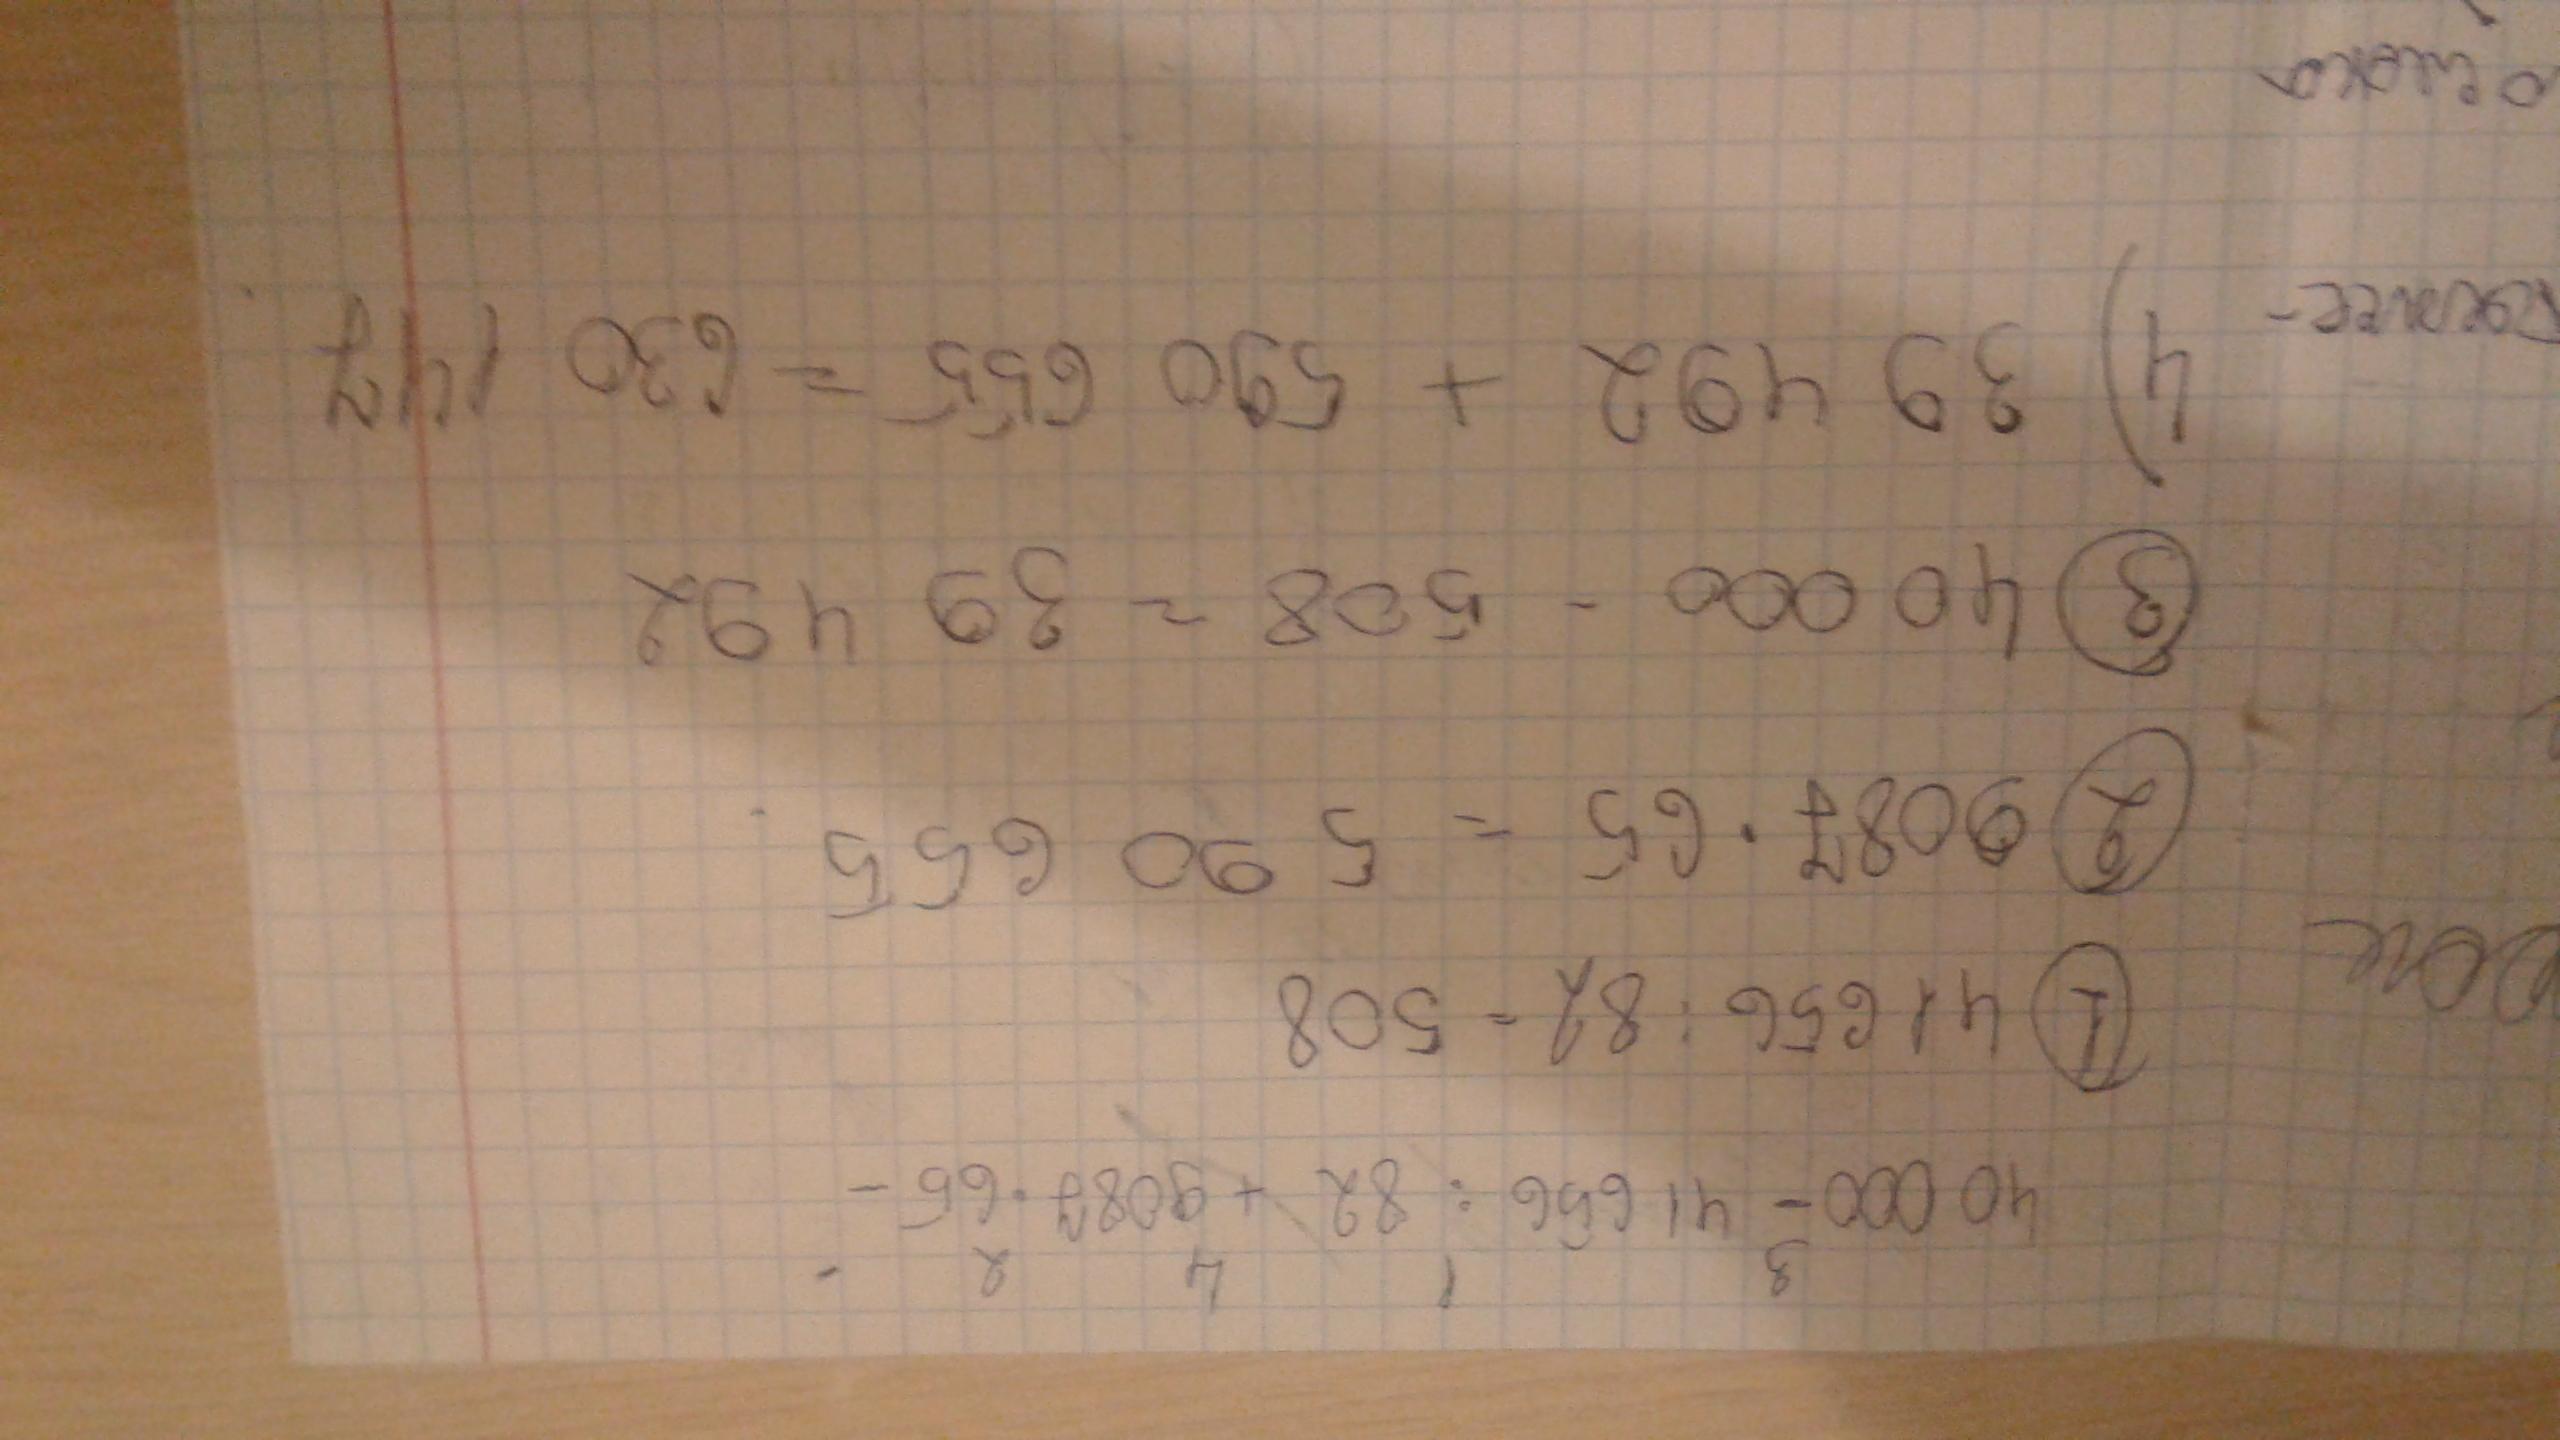 3 1 4 2
40 000 - 41 656 : 82 + 9087 · 65 -
1 41656 : 82 = 508
2 9087 · 65 = 590 655
3 40 000 - 508 = 39 492
4) 39 492 + 590 655 = 630 147